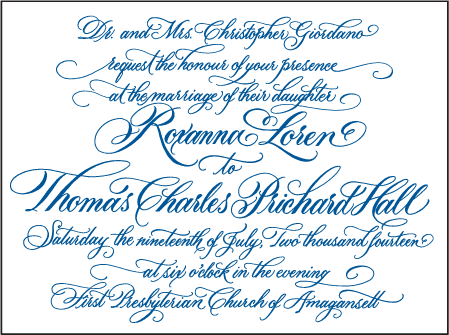 Dr. and Mrs. Christopher Giordano
request the honour of your presence
at the marriage of their daughter
Roxanna Loren
to
Thomas Charles Prichard Hall
Saturday, the nineteenth of July, Two thousand fourteen
at six o'clock in the evening
First Presbyterian Church of Amagansett